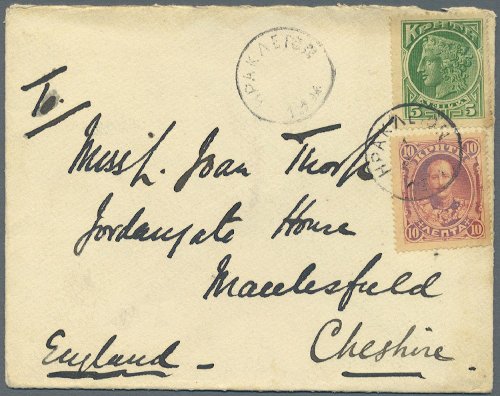 ΗΡΑΚΛΕΙΟΝ
ΚΡΗΤΗ
5 ΛΕΠΤΑ 5
ΗΡΑΚΛΕΙΟΝ
10 ΚΡΗΤΗ 10
10 ΛΕΠΤΑ 10
To/
Miss L. Joan Thorp
Jordangate House
Macclesfield
England - Cheshire.